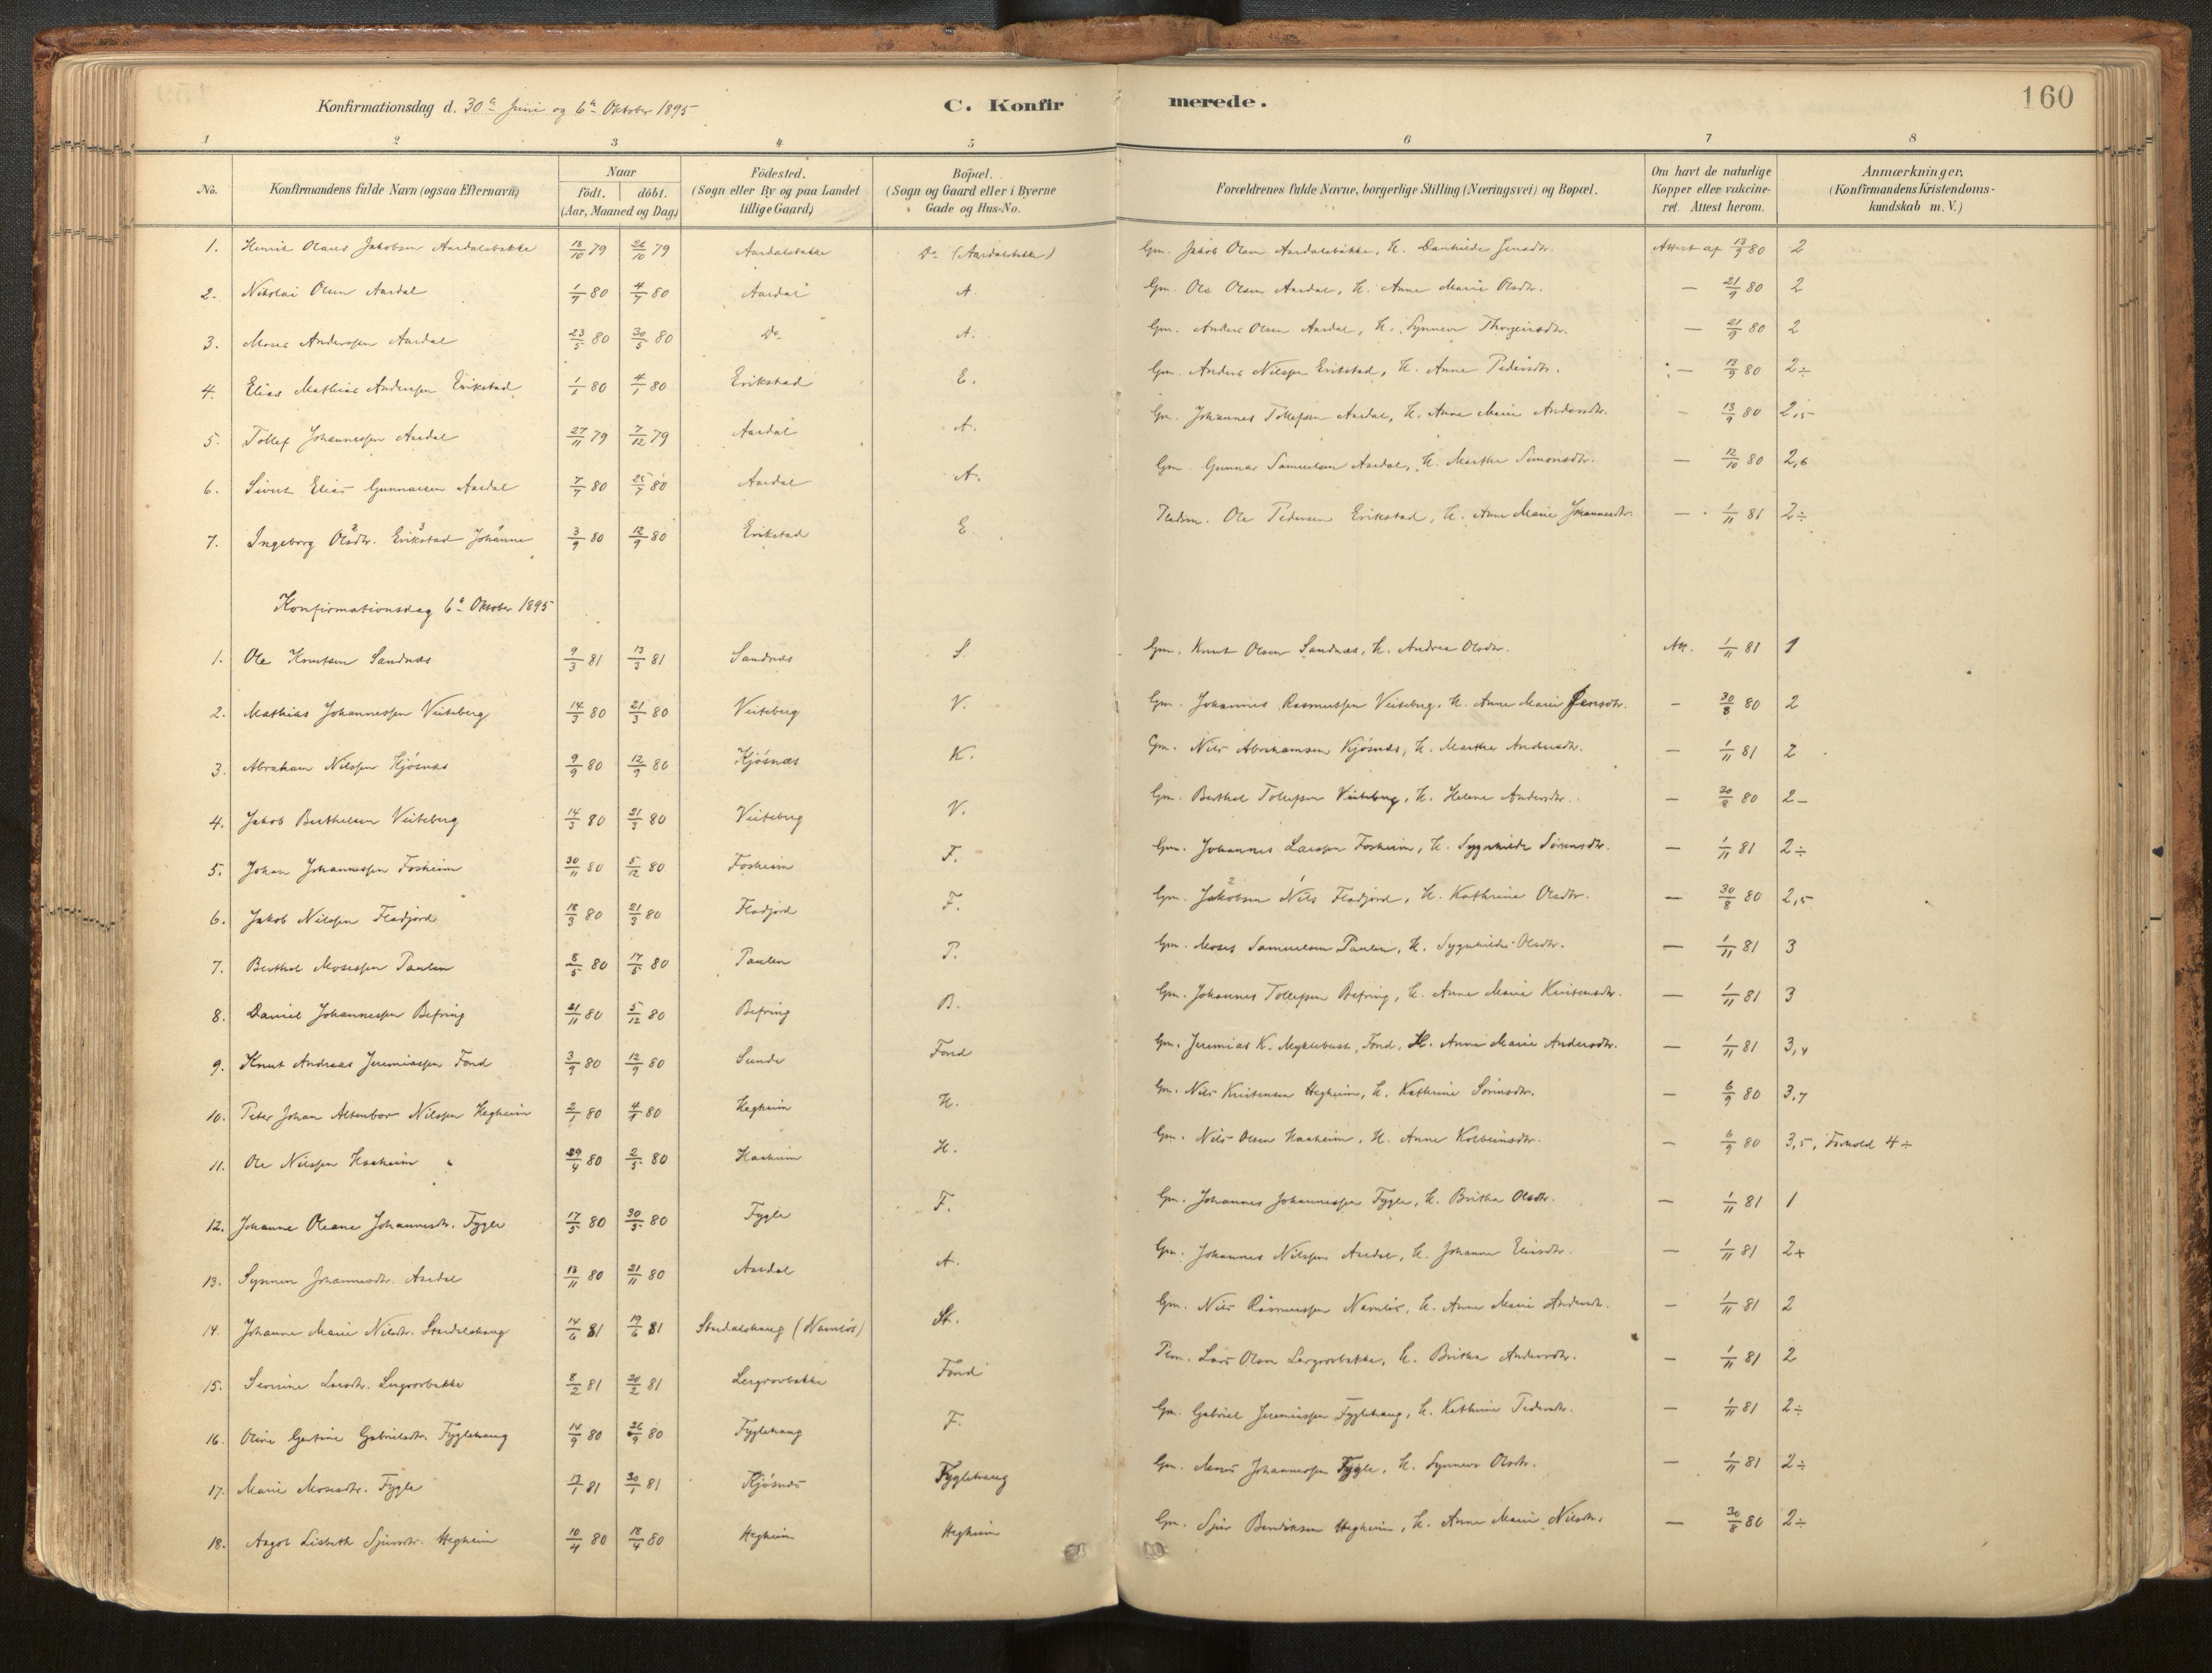 160
Konfirmationsdag d. 30te Juni og 6te Oktober 1895
C. Konfirmerede.
1 2 3 4 5 6 7 8
No. Konfirmandens fulde Navn (ogsaa Efternavn) Naar födt. döbt. (Aar, Maaned og Dag) Födested. (Sogn eller By og paa Landet tillige Gaard) Bopæl. (Sogn og Gaard eller i Byerne Gade og Hus-No. Forældrenes fulde Navne, borgerlige Stilling (Næringsvei) og Bopæl. Om havt de naturlige Kopper eller vakcineret. Attest herom. Anmærkninger, (Konfirmandens Kristendomskundskab m. V.)
1. Henrik Olaus Jakobsen Aardalsbakke 18/10 79 26/10 79 Aardalsbakke Do (Aardalsbakke) Gm. Jakob Olsen Aardalsbakke, H. Danhilde Jensdtr. Attest af 13/9 80 2
2. Nikolai Olsen Aardal 1/7 80 4/7 80 Aardal A. Gm. Ole Olsen Aardal, H. Anne Marie Olsdtr. — 21/9 80 2
3. Moses Anderssen Aardal 23/5 80 30/5 80 Do A. Gm. Anders Olsen Aardal, H. Synneve — 21/9 80 2
4. Elias Mathias Andersen Erikstad 1/1 80 4/1 80 Erikstad E. Gm. Anders Nilssen Erikstad, H. Anne Pedersdtr. — 13/9 80 2÷
5. Tollef Johannessen Aardal 27/11 79 7/12 79 Aardal A. Gm. Johannes Tollefsen Aardal, H. Anne Marie Andersdtr. — 13/9 80 2,5
6. Sivert Elias Gunnarsen Aardal 7/7 80 25/7 80 Aardal A. Gm. Gunnar Samuelsen Aardal, H. Marthe Simonsdtr. — 12/10 80 2,6
7. Ingeborg Olsdtr. Erikstad Johanne 3/9 80 12/9 80 Erikstad E Pladsm. Ole Pedersen Erikstad, H. Anne Marie Johannesdtr. — 1/11 81 2÷
Konfirmationsdag 6te Oktober 1895
1. Ole Knutsen Sandnæs 9/3 81 13/3 81 Sandnæs S. Gm. Knut Olsen Sandnæs, H. Andrea Olsdtr. Att. 1/11 81 1
2. Mathias Johannessen Veiteberg 14/3 80 21/3 80 Veiteberg V. Gm. Johannes Rasmussen Veiteberg, H. Anne Marie Jensdtr. — 30/8 80 2
3. Abraham Nilssen Kjösnæs 9/9 80 12/9 80 Kjösnæs K. Gm. Nils Abrahamsen Kjösnæs, H. Marthe Andersdtr. — 1/11 81 2
4. Jakob Berthelsen Veiteberg 14/3 80 21/3 80 Veiteberg V. Gm. Berthel Tollefsen Veiteberg, H. Helene Andersdtr. — 30/8 80 2–
5. Johan Johannessen Fosheim 30/11 80 5/12 80 Fosheim F. Gm. Johannes Larssen Fosheim, H. Sygnhilde Sörensdtr. — 1/11 81 2÷
6. Jakob Nilssen Fladjord 18/3 80 21/3 80 Fladjord F. Gm. Jakobsen Nils Fladjord, H. Kathrine Olsdtr. — 30/8 80 2,5
7. Berthel Mosessen Paulen 8/5 80 17/5 80 Paulen P. Gm. Moses Samuelsen Paulen, H. Sygnhilde Olsdtr. — 1/11 81 3
8. Daniel Johannessen Befring 21/11 80 5/12 80 Befring B. Gm. Johannes Tollefsen Befring, H. Anne Marie Kristensdtr. — 1/11 81 3
9. Knut Andreas Jeremiassen Fond 3/9 80 12/9 80 Sunde Fond Gm. Jeremias K. Myklebust, Fond, H. Anne Marie Andersdtr. — 1/11 81 3,4
10. Peter Johan Altenbor Nilssen Hegheim 2/1 80 4/1 80 Hegheim H. Gm. Nils Kristensen Hegheim, H. Kathrine Sörensdtr. — 6/9 80 3,7
11. Ole Nilssen Haaheim 29/4 80 2/5 80 Haaheim H. Gm. Nils Olsen Haaheim, H. Anne Kolbeinsdtr. — 6/9 80 3,5, Forhold 4÷
12. Johanne Oleane Johannesdtr. Fygle 17/5 80 30/5 80 Fygle F. Gm. Johannes Johannessen Fygle, H. Brithe Olsdtr. — 1/11 81 1
13. Synneve Johannesdtr. Aardal 13/11 80 21/11 80 Aardal A. Gm. Johannes Nilssen Aardal, H. Johanne Eliasdtr. — 1/11 81 2+
14. Johanne Marie Nilsdtr. Stardalshaug 14/6 81 19/6 81 Stardalshaug (Namlös) St. Gm. Nils Rasmussen Namlös, H. Anne Marie Andersdtr. — 1/11 81 2
15. Severine Larsdtr. Lergrovbakke 8/2 81 20/2 81 Lergrovbakke Fond Plm. Lars Olsen Lergrovbakke, H. Brithe Andersdtr. — 1/11 81 2
16. Oline Gertine Gabrielsdtr. Fyglehaug 14/9 80 26/9 80 Fyglehaug F. Gm. Gabriel Jeremiassen Fyglehaug, H. Kathrine Pedersdtr. — 1/11 81 2÷
17. Marie Mosesdtr. Fygle 13/1 81 30/1 81 Kjösnæs Fyglehaug Gm. Moses Johannessen Fygle, H. Synneve Olsdtr. — 1/11 81 2÷
18. Aagot Lisbeth Sjursdtr. Hegheim 10/4 80 18/4 80 Hegheim Hegheim Gm. Sjur Bendiksen Hegheim, H. Anne Marie Nilsdtr. — 30/8 80 2÷